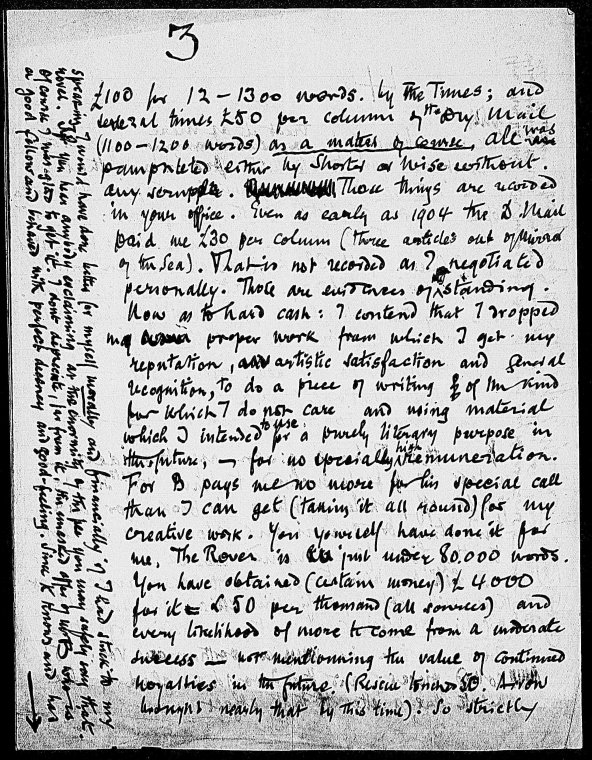 3
£100 for 12–1300 words. by the Times; and
several times £50 per column of the Dly Mail
(1100–1200 words) as a matter of course, all was
pamphleted either by Shorter or Wise without
any scruple. Those things are recorded
in your office. Even as early as 1904 the D. Mail
paid me £30 per column (three articles out of Mirror
of the Sea). That is not recorded as I negotiated
personally. Those are evidences of my standing.
Now as to hard cash: I contend that I dropped
my proper work from which I get my
reputation, artistic satisfaction and general
recognition, to do a piece of writing of the kind
for which I do not care and using material
which I intended to use for a purely literary purpose in
the future, – for no specially high remuneration.
For B pays me no more for his special call
than I can get (taking it all round) for my
creative work. You yourself have done it for
me. The Rover is just under 80.000 words.
You have obtained (certain money) £4000
for it = £50 per thousand (all sources) and
every likelihood of more to come from a moderate
success – not mentionning the value of continued
royalties in the future. (Rescue touched 50. Arrow
brought nearly that by this time). So strictly
speaking I would have done better for myself morally and financially if I had stuck to my
novel. If you hear anybody exclaiming at the enormity of the fee you may safely say that.
Of course I was glad to get it. I don't depreciate, far from it, the offer of B who is
a good fellow and behaved with perfect decency and good-feeling. Since K knows and has